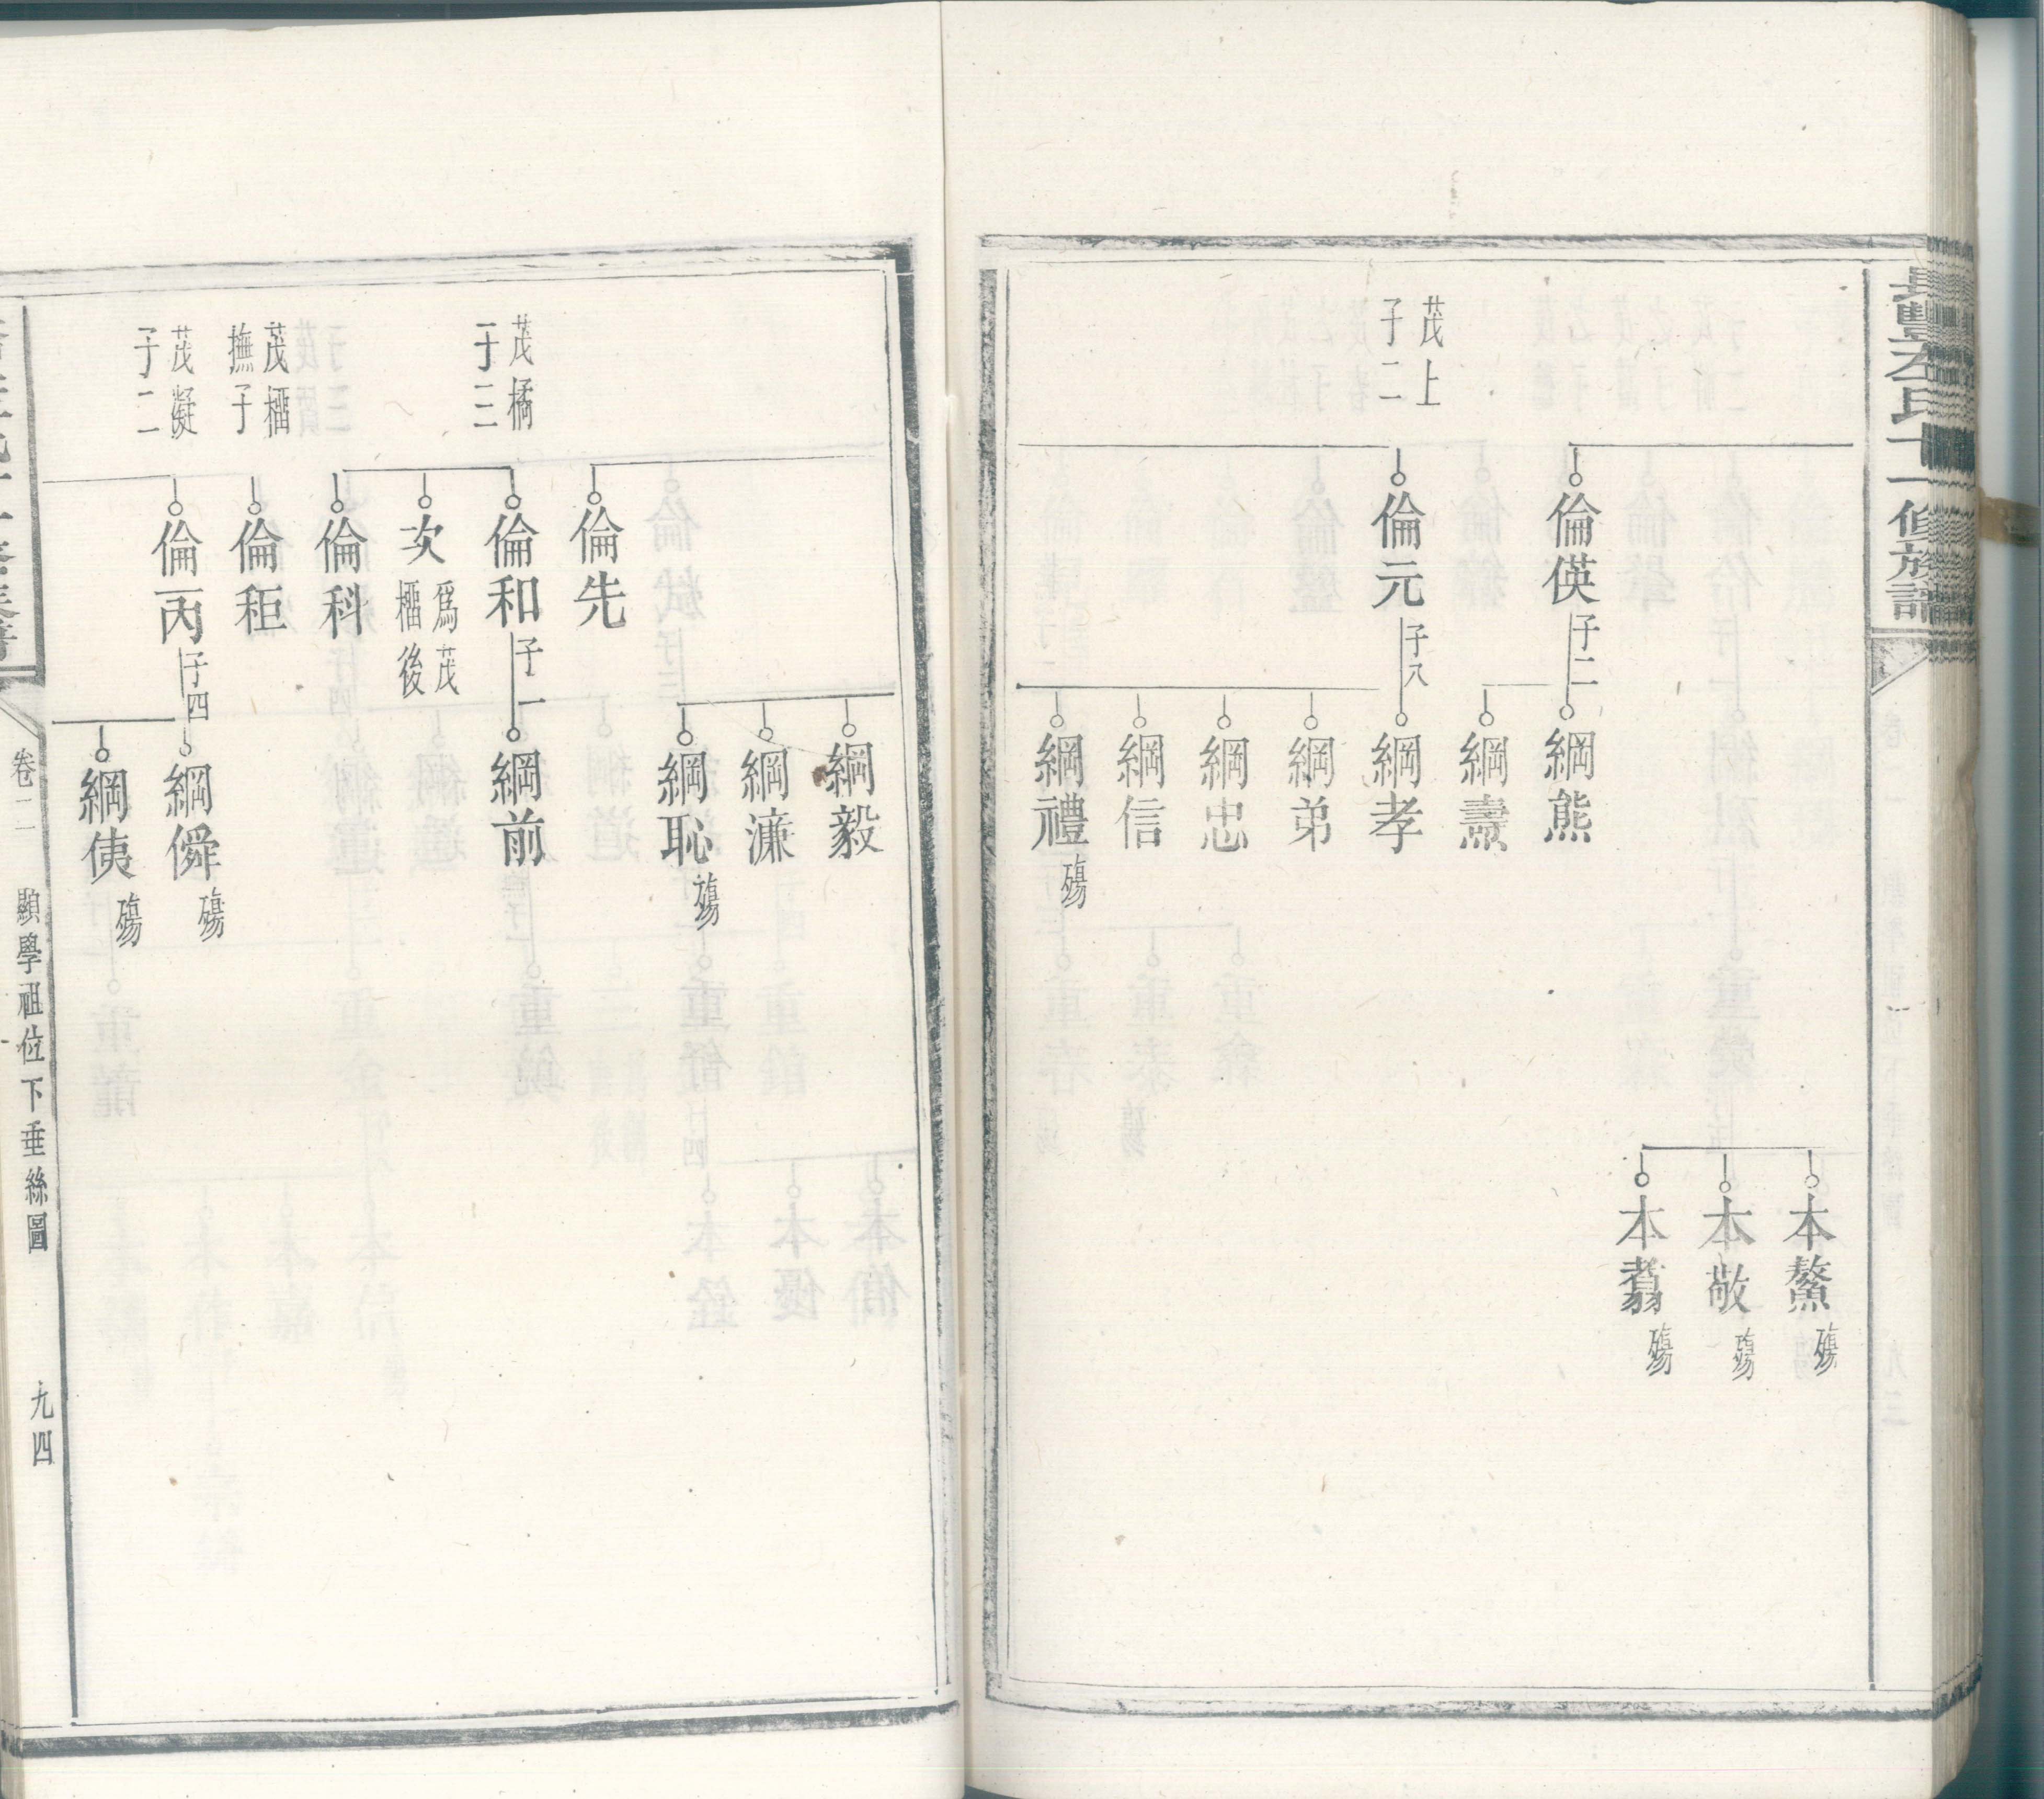 長豐左氏十一修族譜
本鰲 殤
本敬 殤
本翥 殤
倫偀 子二
綱熊
綱燾
茂上子二
倫元 子八
綱孝
綱弟
綱忠
綱信
綱禮 殤
綱毅
綱濂
綱恥 殤
倫先
茂橘子三
倫和 子一
綱前
次 爲茂櫃後
倫科
茂櫃撫子
倫秬
茂凝子二
倫丙 子四
綱僢 殤
綱侇 殤
卷二
顯學祖位下垂絲圖
九四